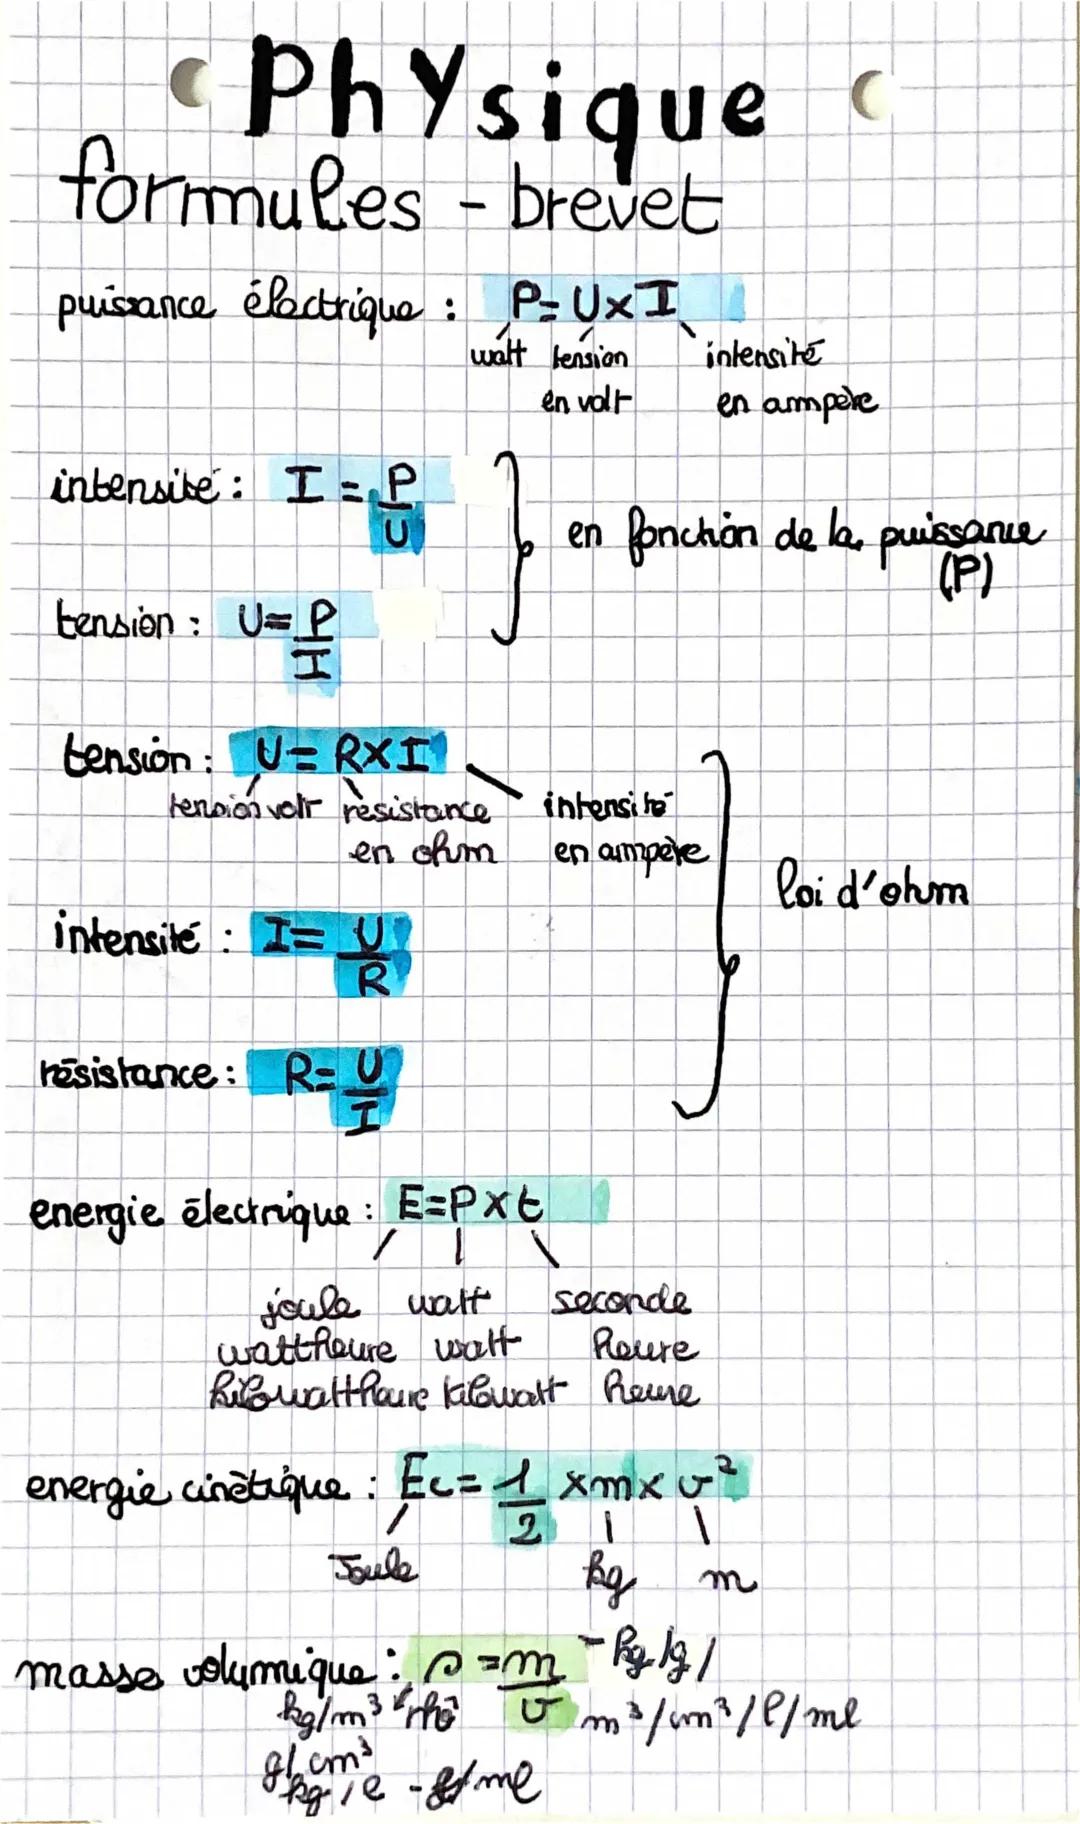 • PhYsique
formules - brevet
puissance électrique : P= U×I
watt tension intensité
en volt en ampère
intensité : I = P/U
en fonction de la puissance
(P)
tension : U= P/I
tension : U= R×I
tension volt résistance intensité
en ohm en ampère
loi d'ohm
intensité : I= U/R
résistance : R= U/I
energie électrique : E=P×t
joule watt seconde
wattheure watt heure
kilowattheure kilowatt heure
energie cinètique : Ec= 1/2 ×m× v²
Joule kg m
masse volumique : ρ = m/v - kg/g/
kg/m³ rhô m³/cm³/l/ml
g/cm³
kg/l - g/ml